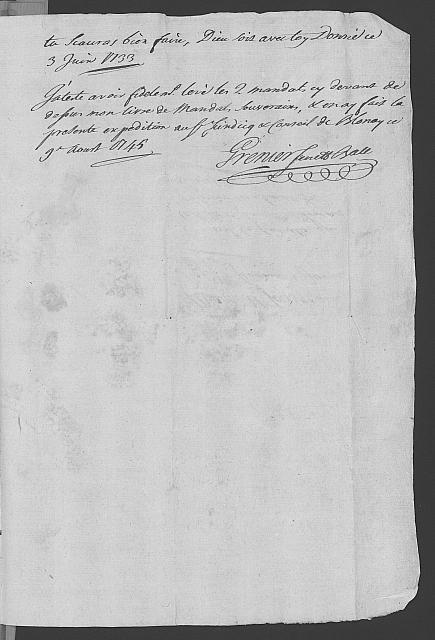 tu scauras bien faire, Dieu sois avec toy Donné ce
3 Juin 1733
J'ateste avoir fidelemt levé les 2 mandats cy devant de
dessus mon livre de Mandats Souverain, & en ay fait la
presente expedition au Sr Sindicq & Conseil de Blonay ce
9e Aoust 1745
Grenier